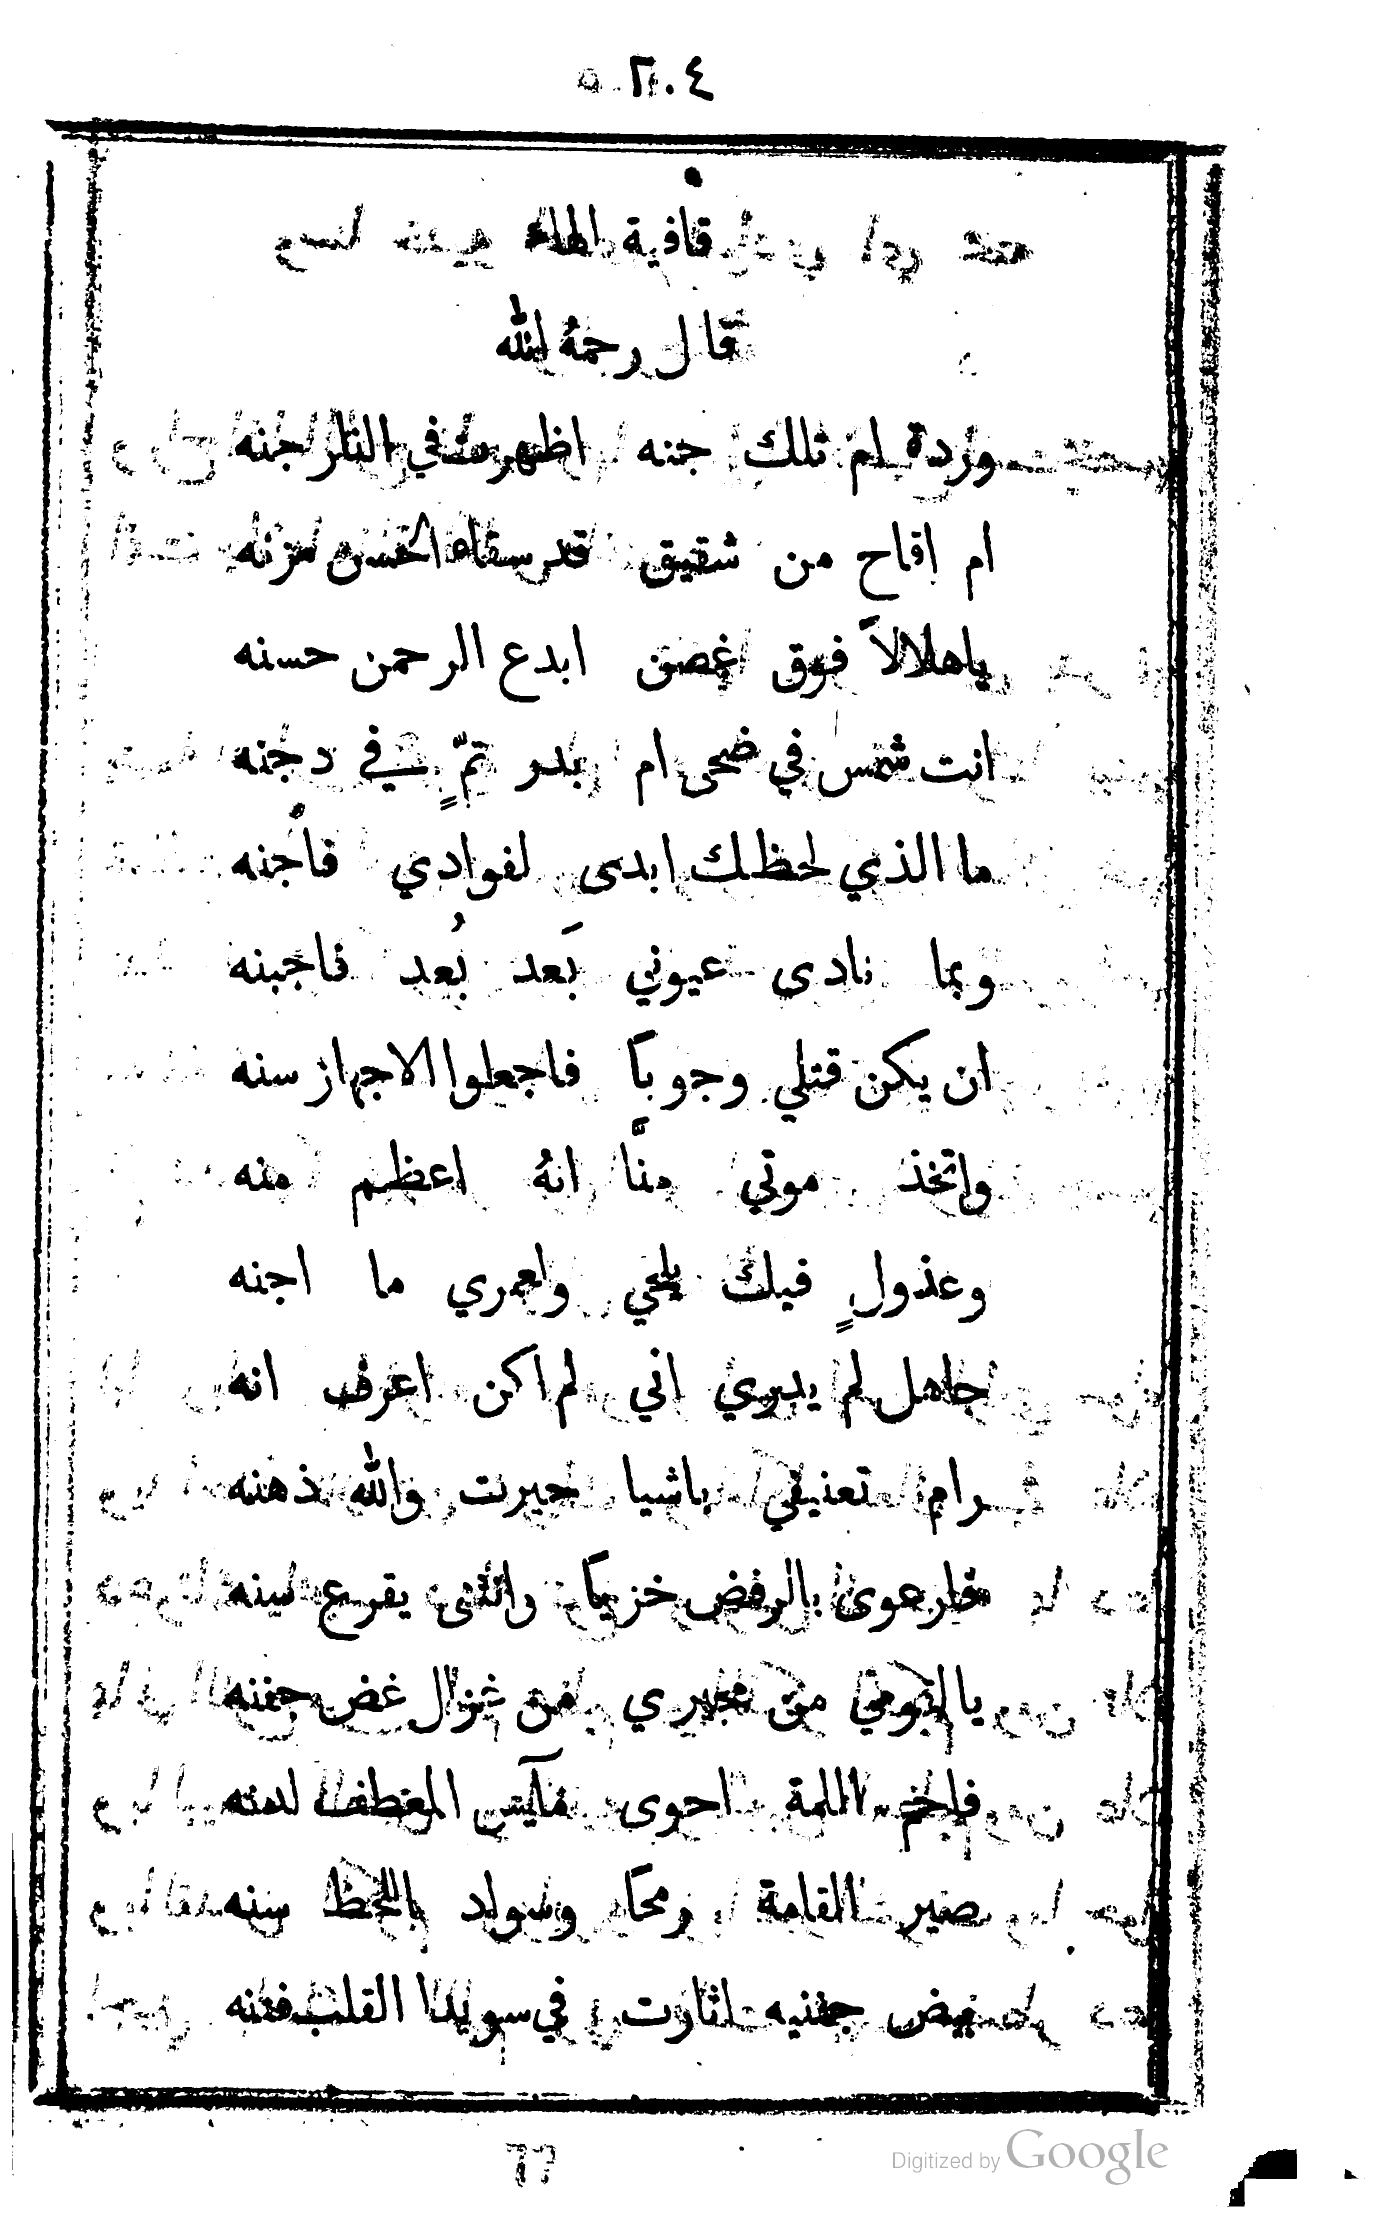 ٢٠٤
قافية الهاء
قال رحمهُ الله
وردة ام تلك جنه اظهرت في النار جنه
ام اقاح من شقيق قد سقاه الحسن مزنه
ياهلالاً فوق غصن ابدع الرحمن حسنه
انت شمس في ضحى ام بدر تمٍّ في دجنه
ما الذي لحظك ابدى لفوادي فاُجنه
وبما نادى عيوني بَعد بُعد فاجبنه
ان يكن قتلي وجوباً فاجعلوا الاجهاز سنه
واتخذ موتي منّاً انهُ اعظم منه
وعذولٍ فيك يلحي ولعمري ما اجنه
جاهل لم يدري اني لم اكن اعرف انه
رام تعنيفي باشيا حيرت والله ذهنه
فارعوى بالرفض خزياً وانثنى يقرع سنه
يا لقومي من مجيري من غزال غض جفنه
فاحم اللمة احوى مآيس المعطف لدنه
صير القامة رمحاً وسواد باللحظ سنه
بيض جفنيه اثارت في سويدا القلب فتنه
Digitized by Google